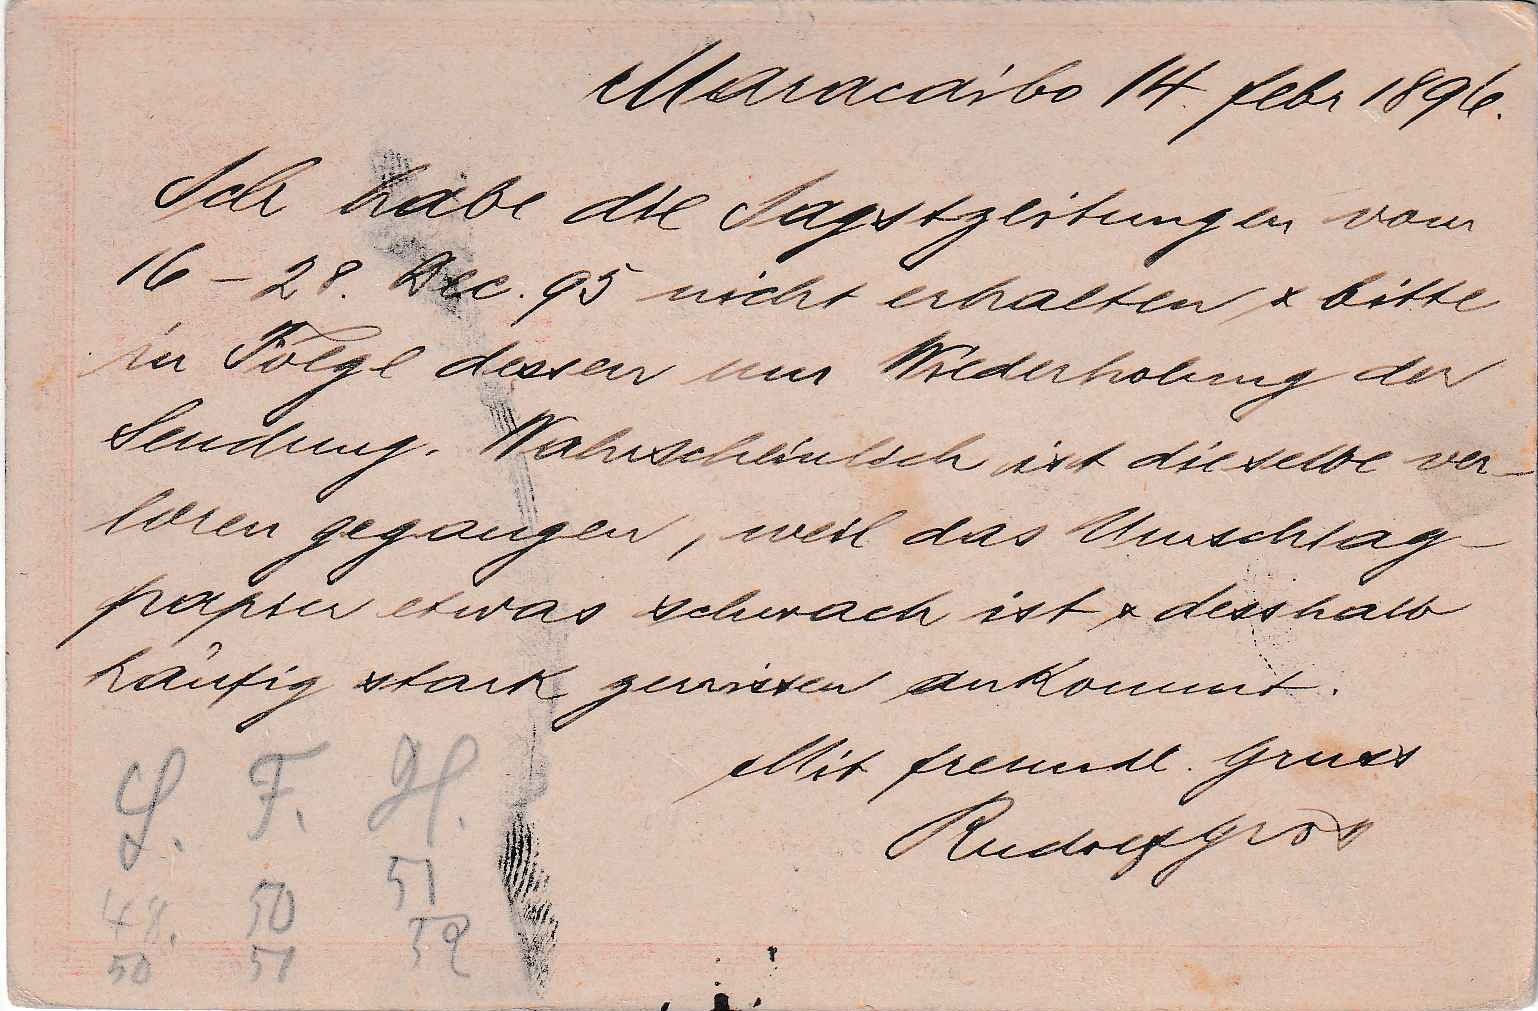 Maracaibo 14. Febr 1896.
Ich habe die Jagdzeitungen vom
16 – 28. Dec. 95 nicht erhalten & bitte
in Folge dessen um Wiederholung der
Sendung. Wahrscheinlich ist dieselbe ver-
loren gegangen, weil das Umschlag-
papier etwas schwach ist & desshalb
häufig stark zerrissen ankommt.
Mit freundl. Gruss
Rudolf
F. H.
48. 50 51
50 51 52